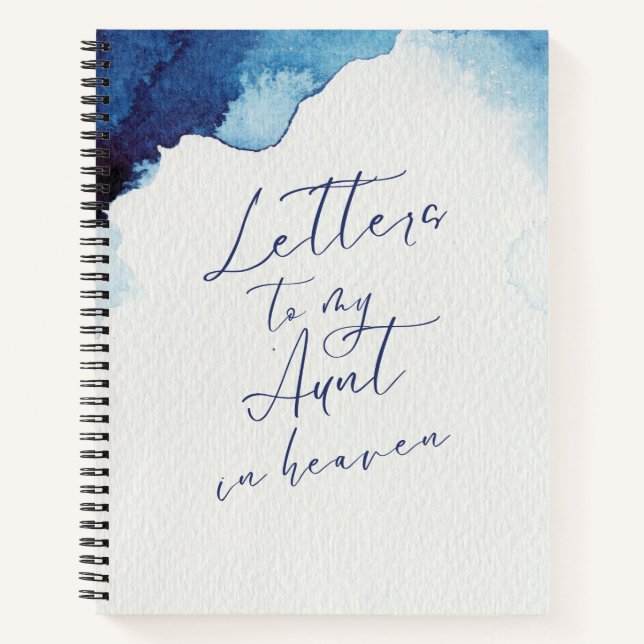 Letters
to my
Aunt
in heaven